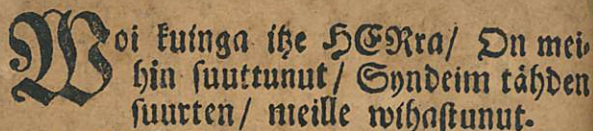 Woi kuinga itze HERra/ On mei-
hin suuttunut/ Syndeim tähden
suurten/ meille wihastunut.